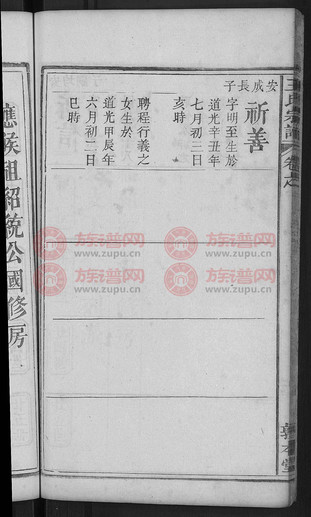 王氏宗譜
卷之
敦本堂
安成長子
祈善
字明至生於
道光辛丑年
七月初三日
亥時
聘程行義之
女生於
道光甲辰年
六月初二日
巳時
應候祖紹統公國修房
一
族谱网
www.zupu.cn
族谱网
www.zupu.cn
族谱网
www.zupu.cn
族谱网
www.zupu.cn
族谱网
www.zupu.cn
族谱网
www.zupu.cn